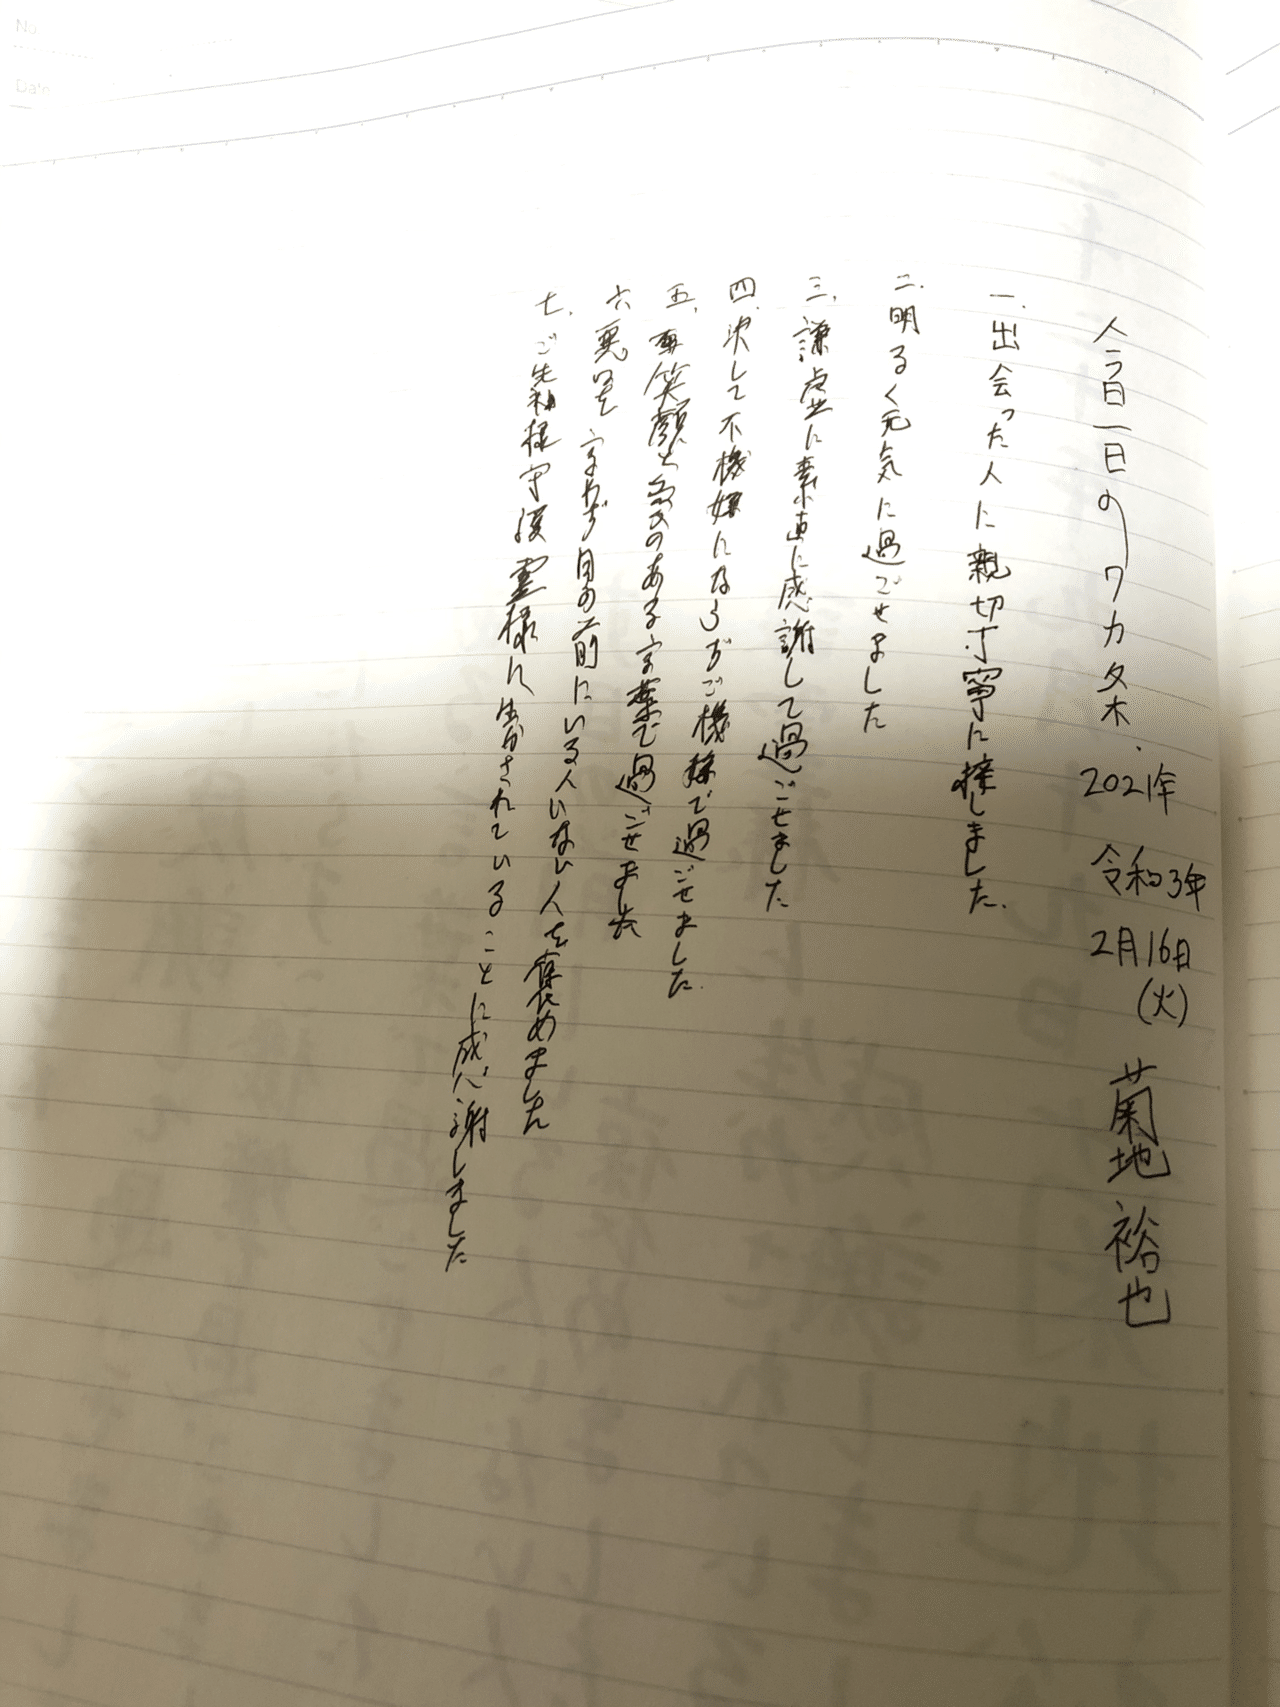 今日一日の7カ条. 2021年 令和3年 2月16日(火) 菊地 裕也
一.出会った人に親切丁寧に接しました.
二.明るく元気に過ごせました
三.謙虚に素直に感謝して過ごせました
四.決して不機嫌にならずご機嫌で過ごせました.
五.笑顔と のある言葉で過ごせました
六.悪口を言わず目の前にいる人いない人を褒めました
七.ご先祖様守護霊様に生かされていることに感謝しました
No.
Date